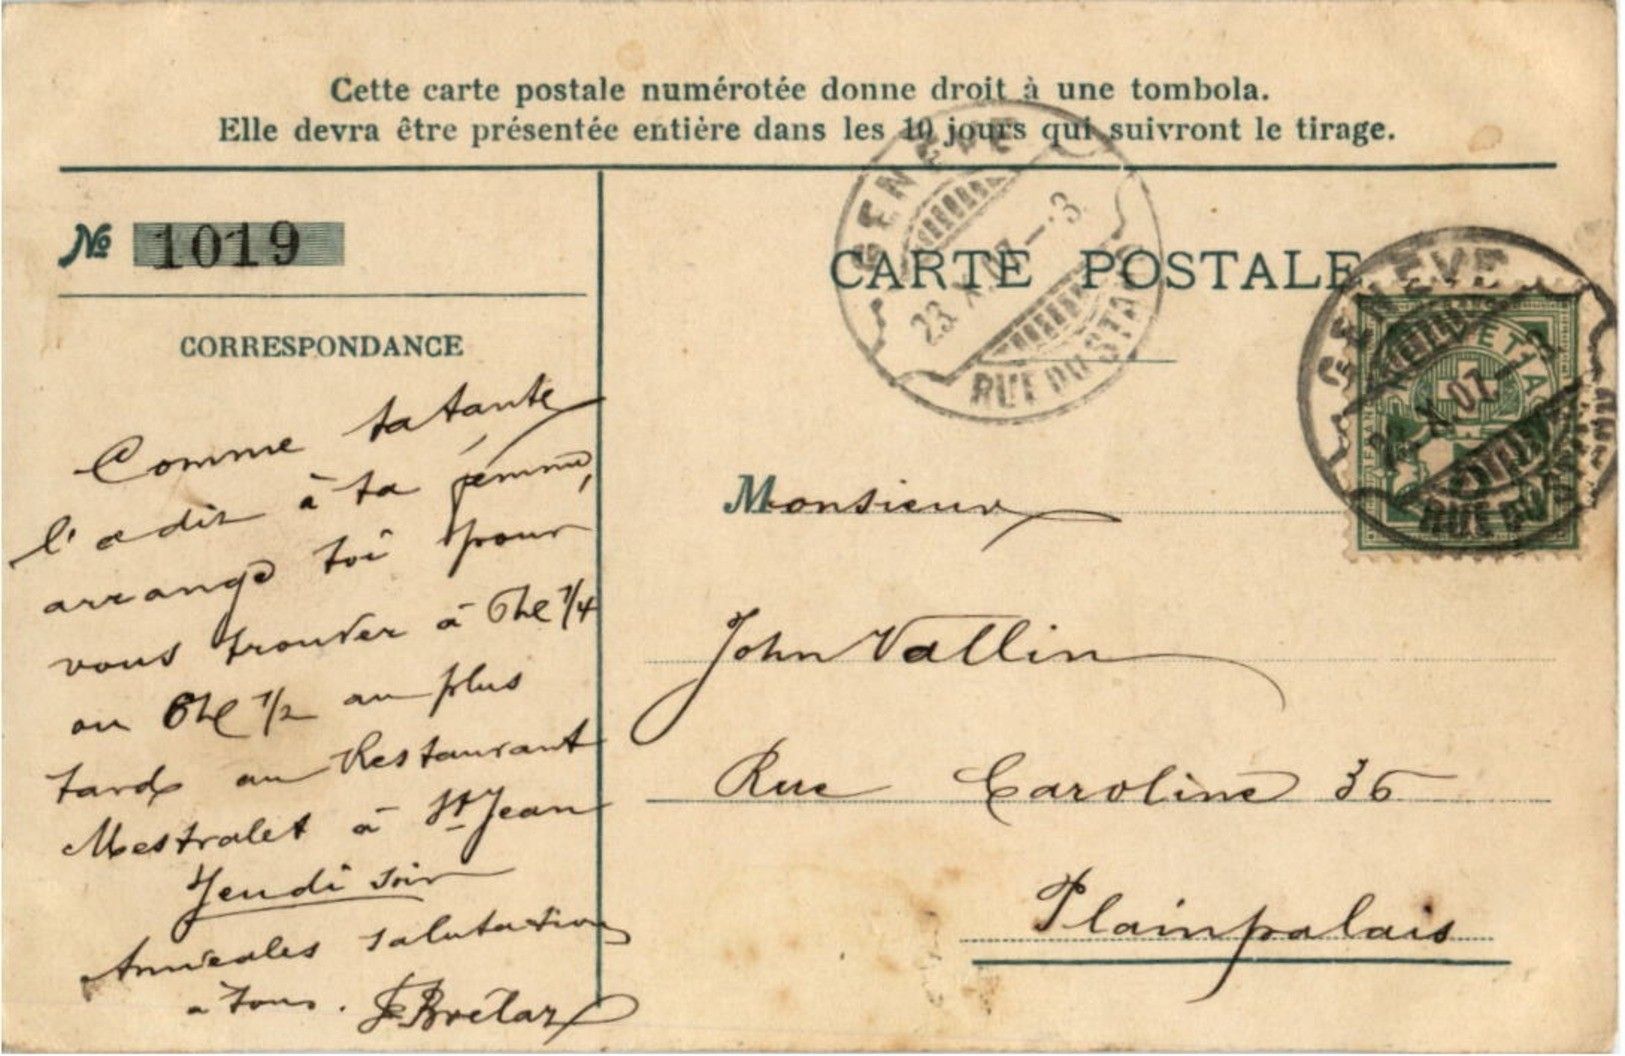 Cette carte postale numérotée donne droit à une tombola.
Elle devra être présentée entière dans les 10 jours qui suivront le tirage.
No 1019
CORRESPONDANCE
Comme ta tante
l'a dit à ta femme,
arrange toi pour
vous trouver à 6h 1/4
ou 6h 1/2 au plus
tard au Restaurant
Mestralet à St Jean
Jeudi soir
Amicales salutations
à tous.
CARTE POSTALE
GENÈVE
23. X. 07 — 3
RUE DU STAND
GENÈVE
X. 07
RUE DU
HELVETIA
Monsieur
John Vallin
Rue Caroline 36
Plainpalais